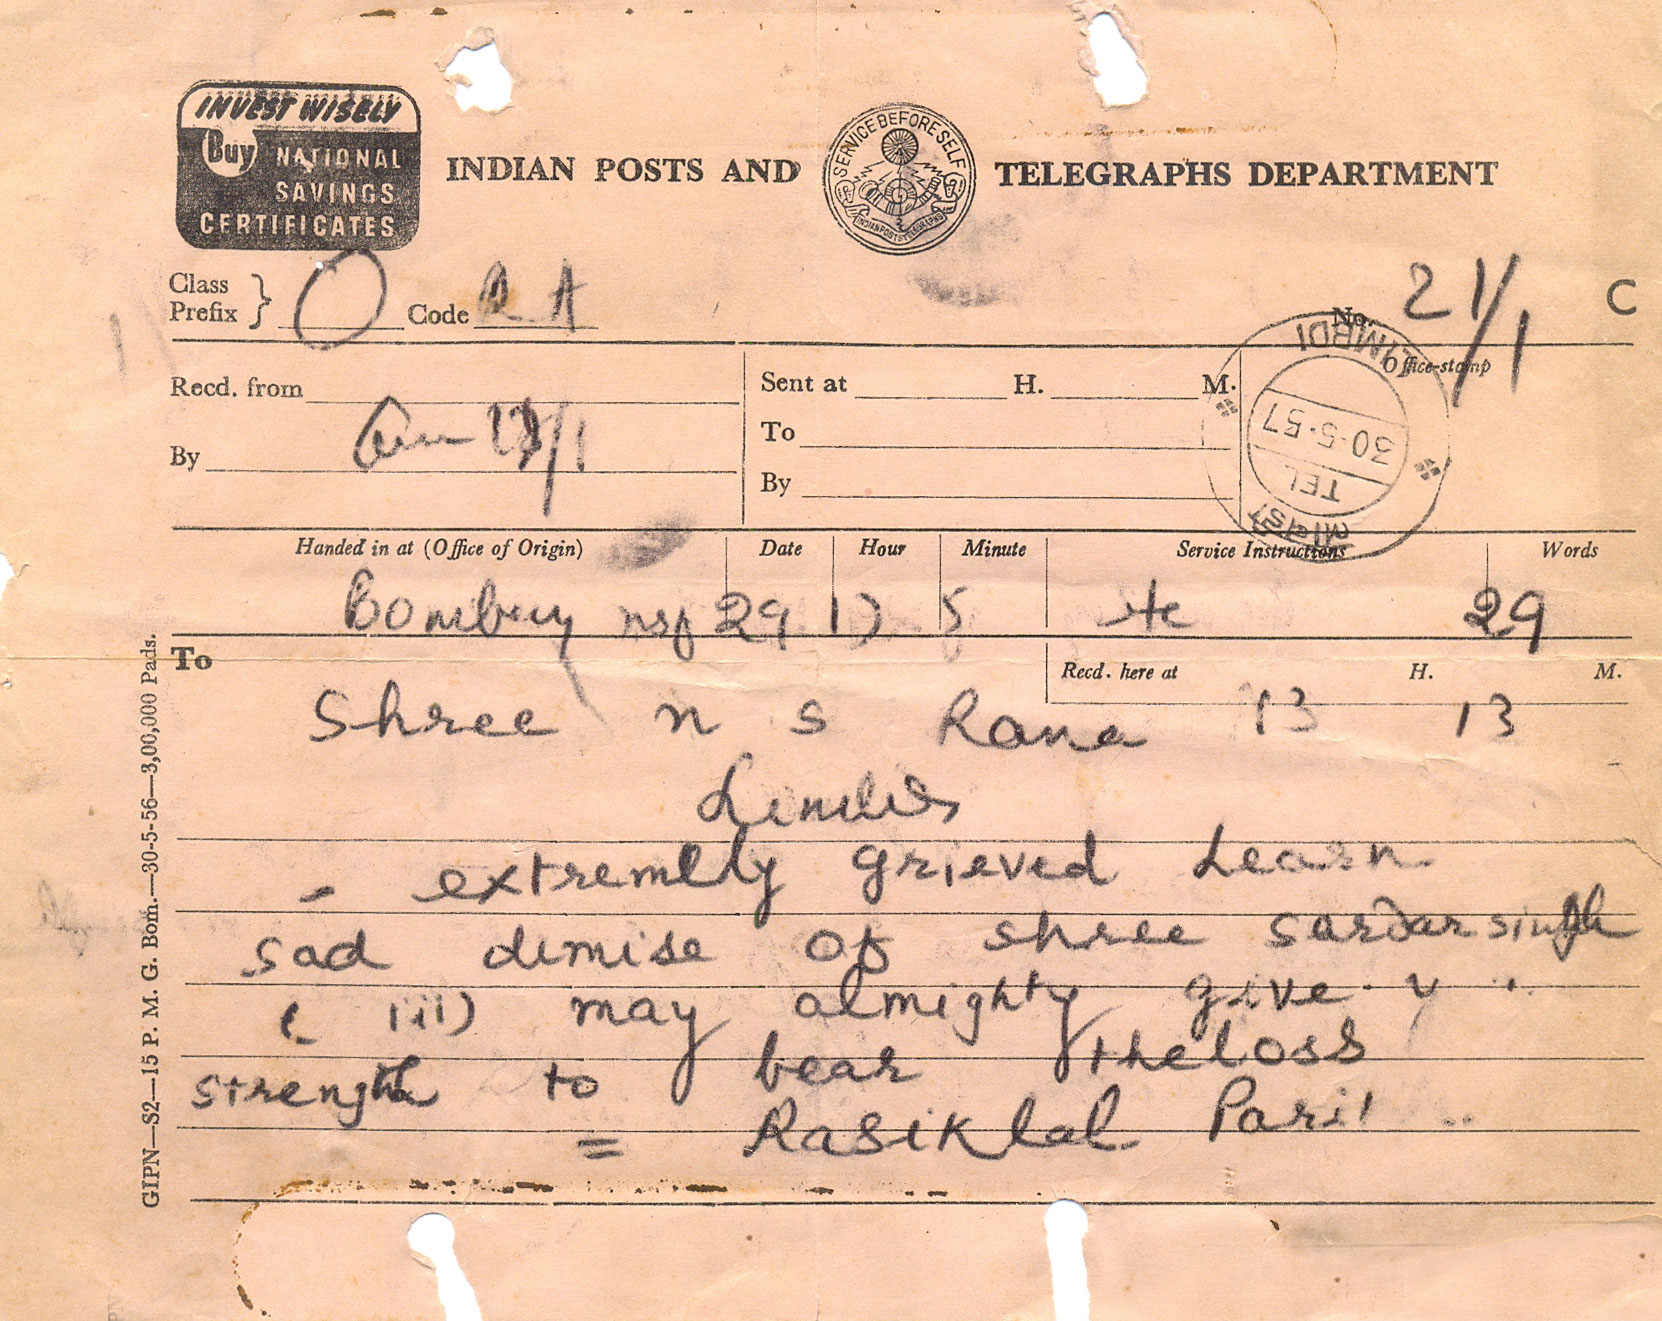 INVEST WISELY
Buy NATIONAL
SAVINGS
CERTIFICATES
INDIAN POSTS AND TELEGRAPHS DEPARTMENT
SERVICE BEFORE SELF
INDIAN POSTS & TELEGRAPHS
Class
Prefix } O Code A
No. 21/1 C
Office-stamp
LIMBDI
30·5·57
TEL
Recd. from
By
Sent at H. M.
To
By
Handed in at (Office of Origin) Date Hour Minute Service Instructions Words
Bombay 29 17 5 29
To
Recd. here at H. M.
13 13
Shree n s Rana
- extremlly grieved Learn
sad demise of shree sardarsingh
may almighty give
strength to bear theloss
= Rasiklal
GIPN—S2—15 P. M. G. Bom.—30-5-56—3,00,000 Pads.